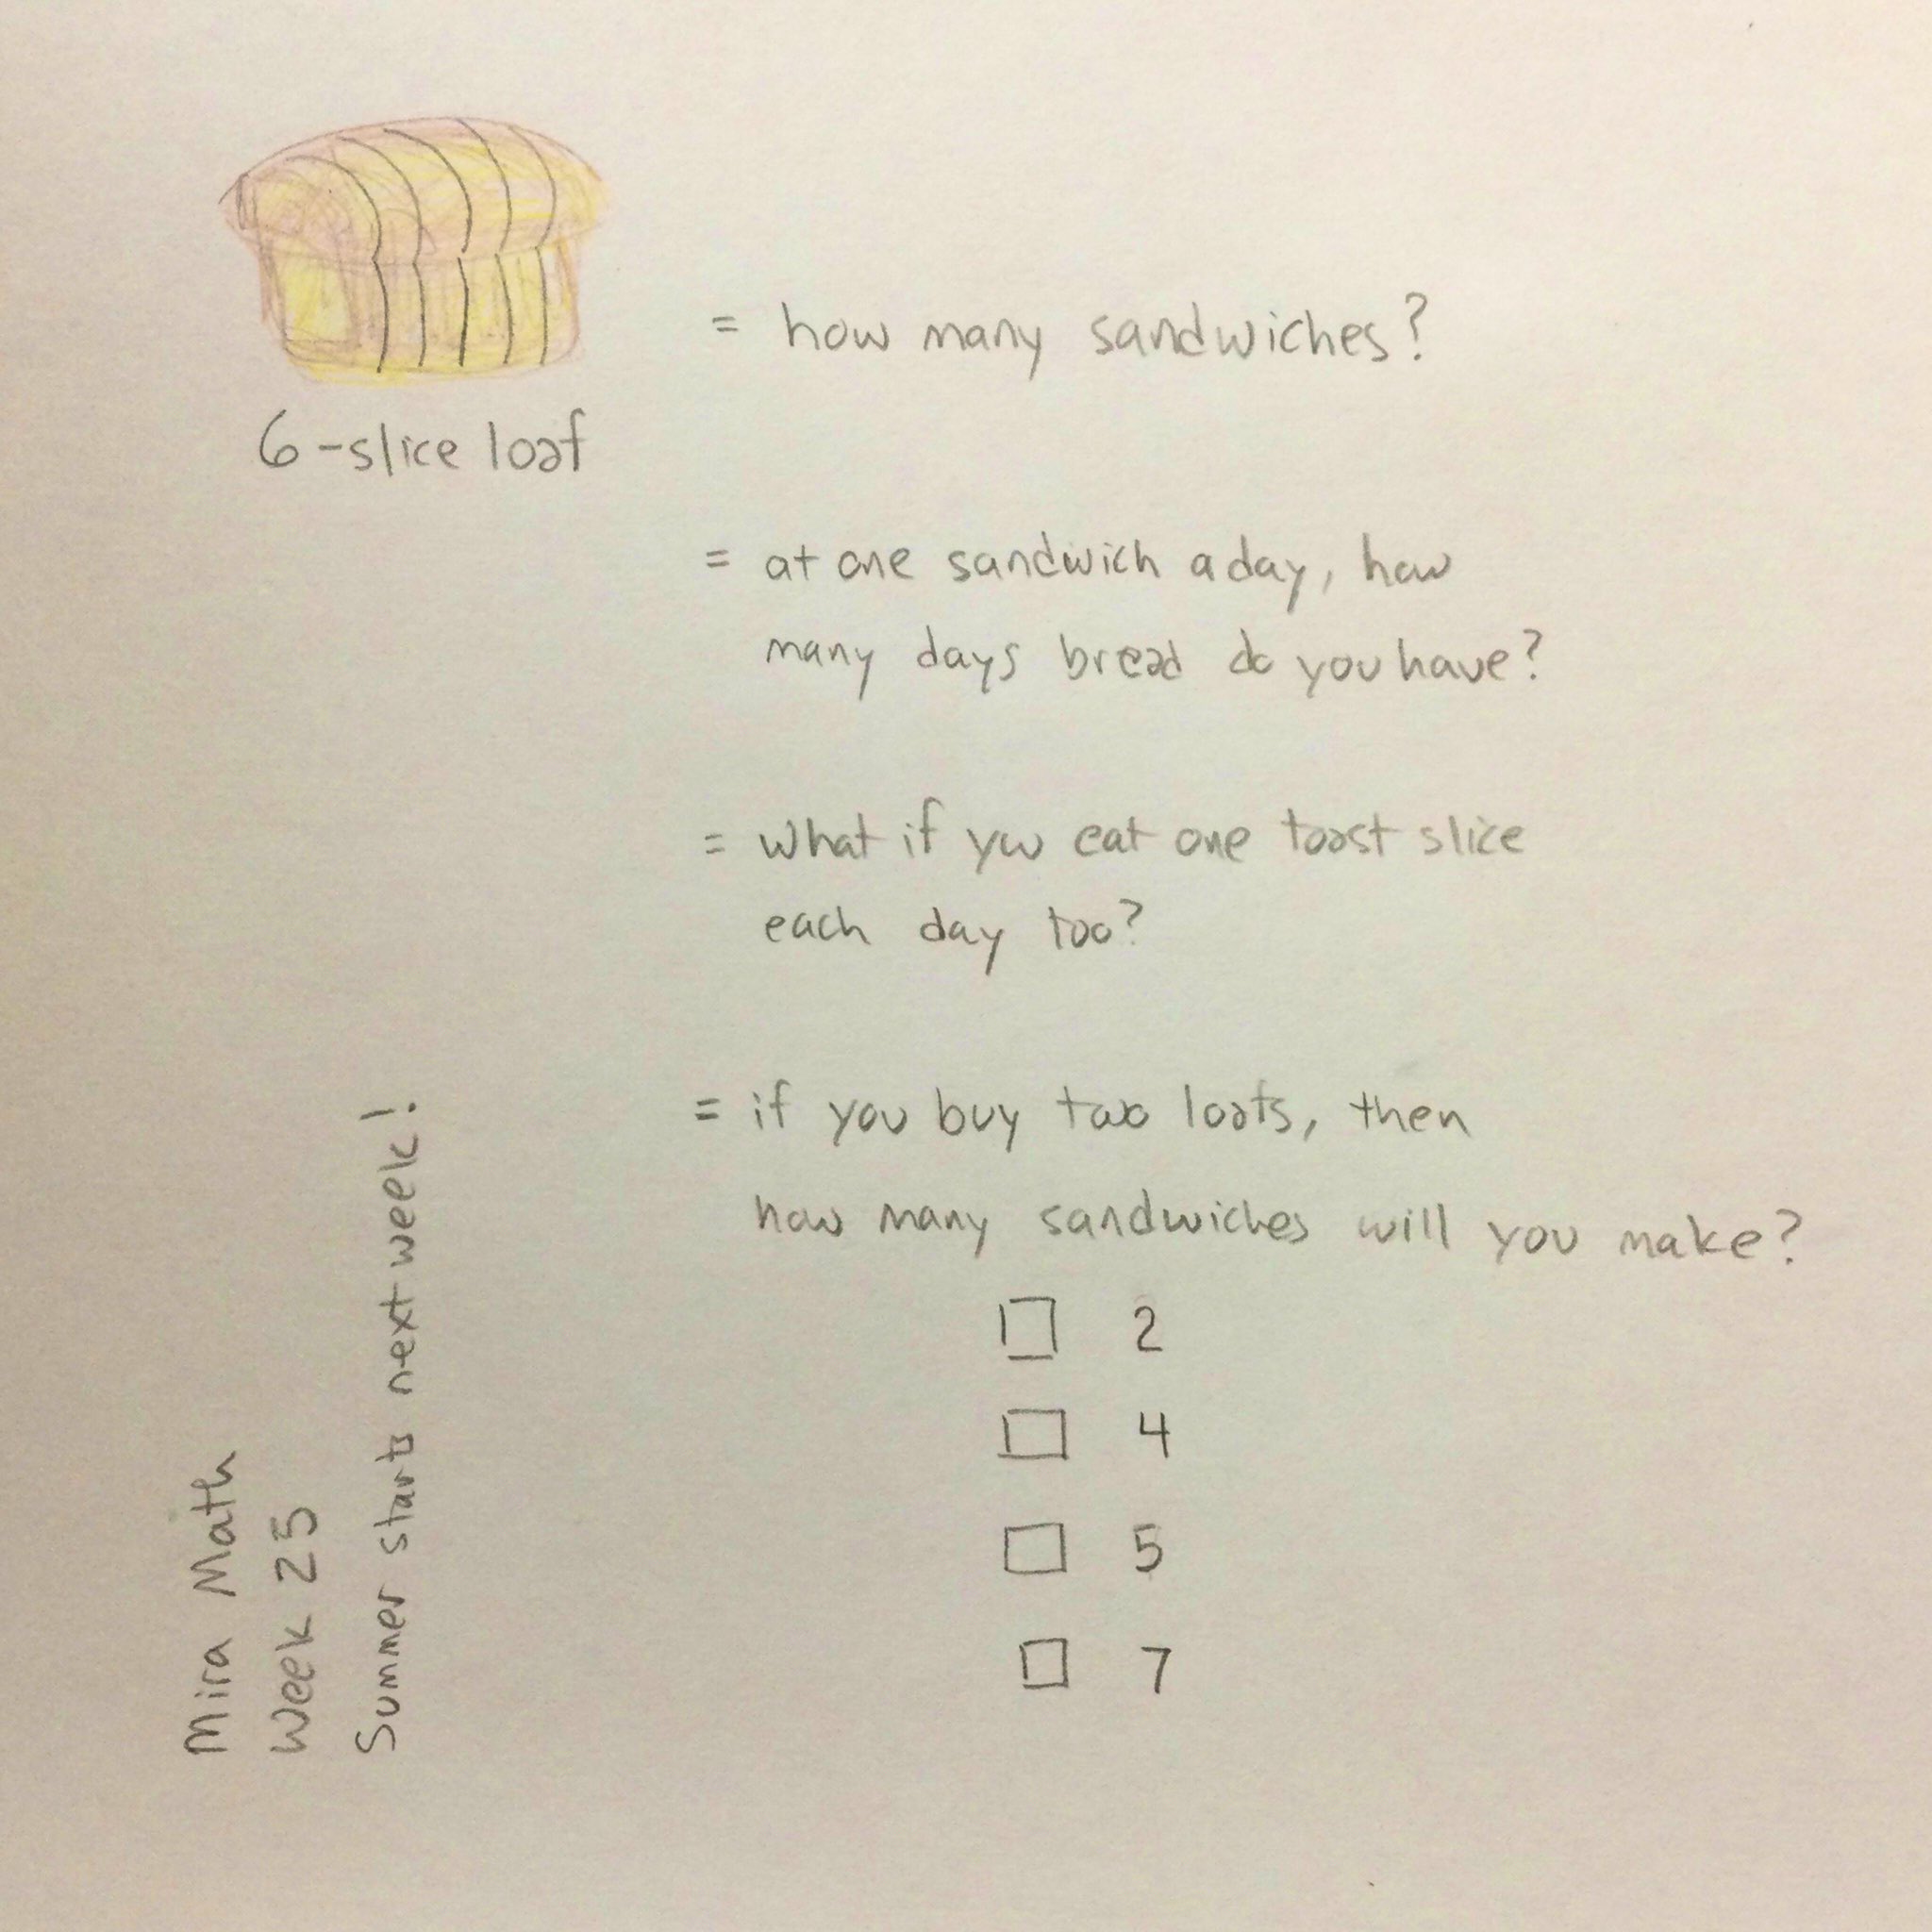 = how many sandwiches?
6-slice loaf
= at one sandwich a day, how
many days bread do you have?
= what if you eat one toast slice
each day too?
= if you buy two loafs, then
how many sandwiches will you make?
2
4
5
7
Mira Math
Week 25
Summer starts next week!